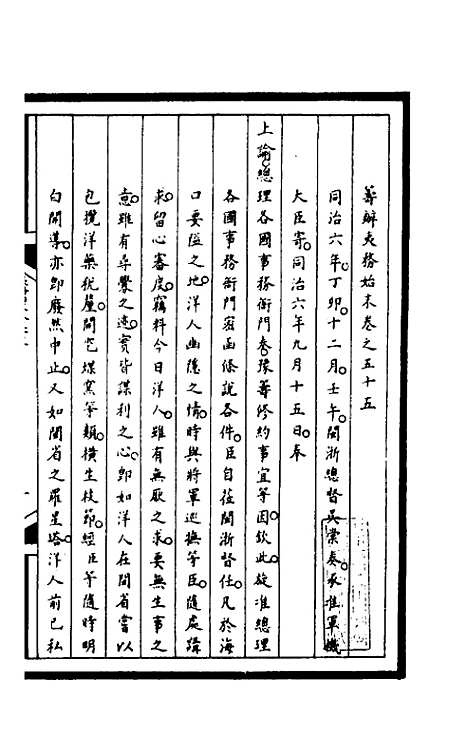 籌辦夷務始末卷之五十五
同治六年丁卯十二月壬午閩浙總督吳棠奏承准軍機
大臣寄同治六年九月十五日奉
上諭總理各國事務衙門奏豫籌修約事宜等因欽此旋准總理
各國事務衙門密函條說各件臣自莅閩浙督任凡於海
口要隘之地洋人幽隱之情時與將軍巡撫等臣隨處講
求留心審度竊料今日洋人雖有無厭之求要無生事之
意雖有尋釁之迹實皆謀利之心即如洋人在閩省嘗以
包攬洋藥税釐開挖煤窯等類橫生枝節經臣等隨時明
白開導亦即廢然中止又如閩省之羅星塔洋人前已私